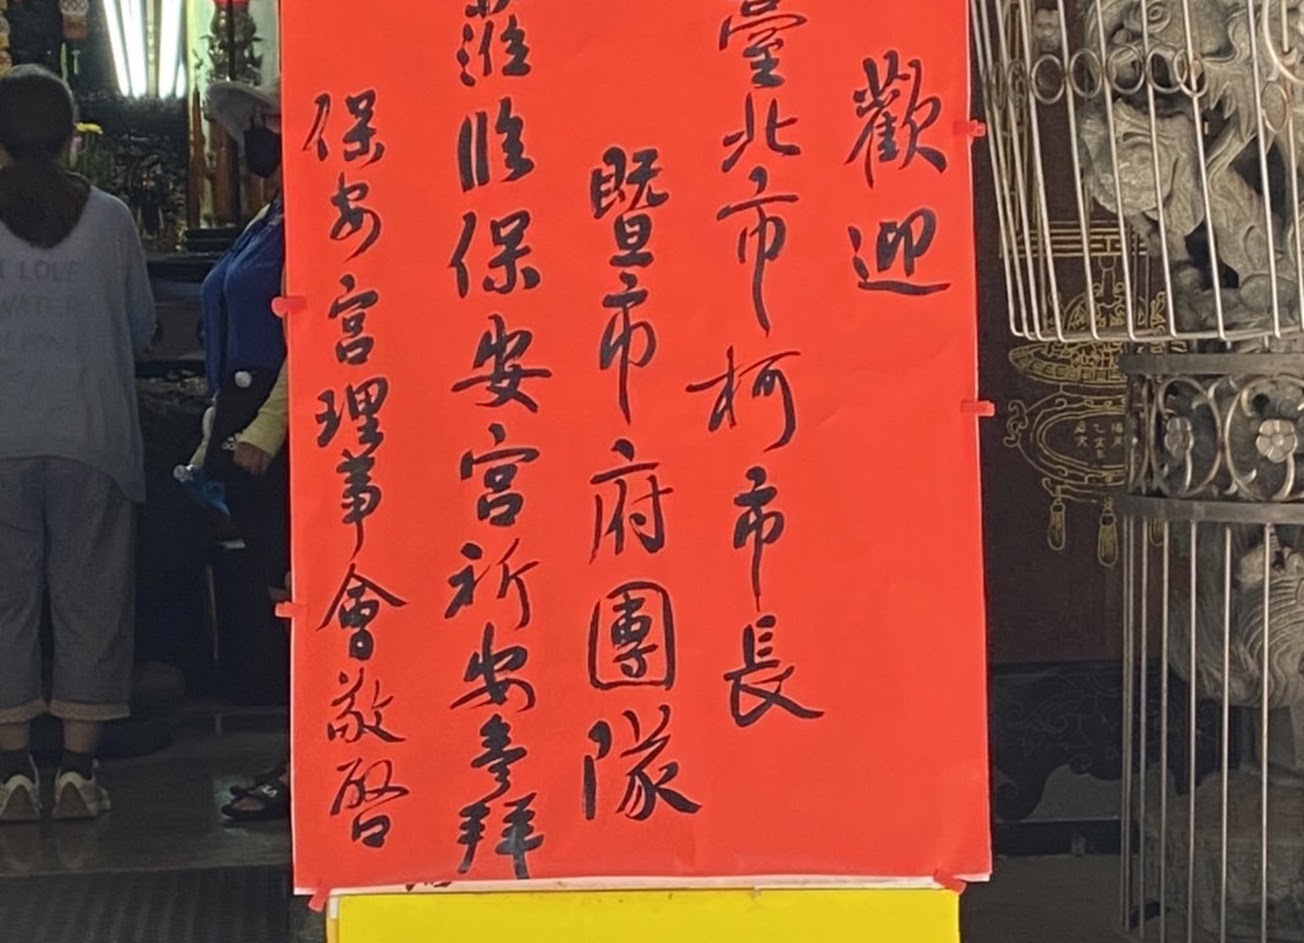 歡迎
臺北市柯市長
暨市府團隊
蒞臨保安宮祈安參拜
保安宮理事會敬啓
I LOVE
WATER